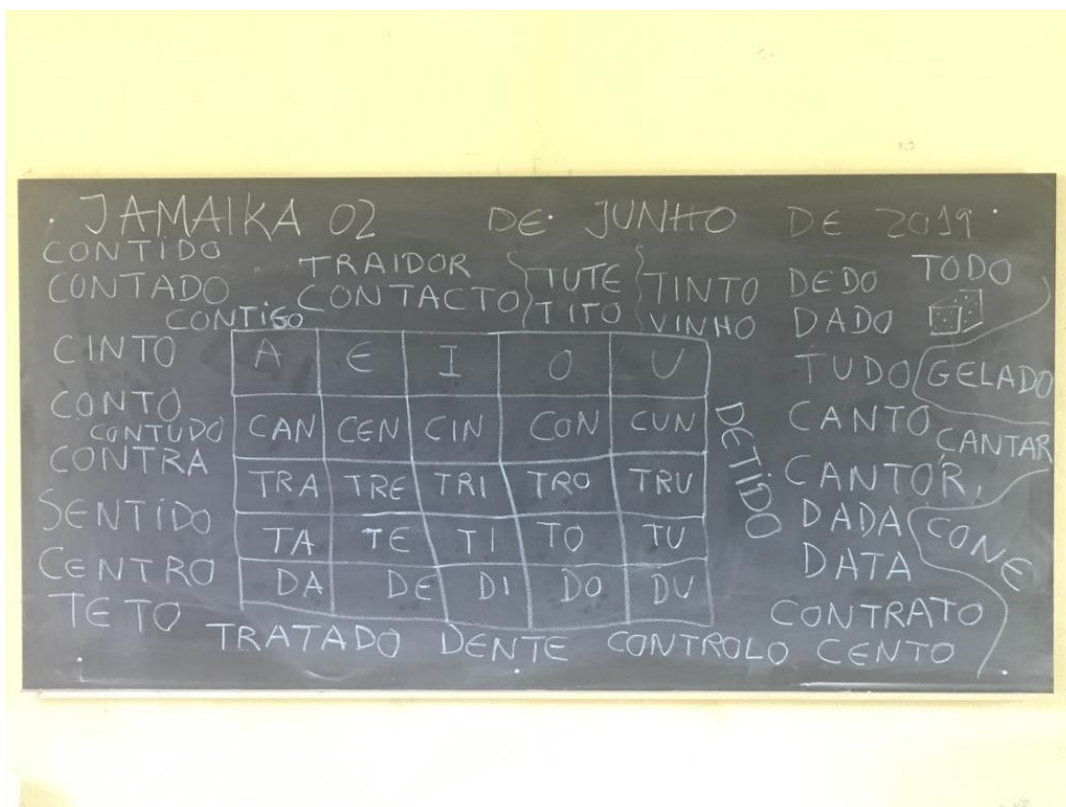 JAMAIKA 02 DE JUNHO DE 2019
CONTIDO
CONTADO
CONTIGO
CINTO
CONTO
CONTUDO
CONTRA
SENTIDO
CENTRO
TETO
TRAIDOR
CONTACTO
TUTE
TITO
TINTO
VINHO
A E I O U
CAN CEN CIN CON CUN
TRA TRE TRI TRO TRU
TA TE TI TO TU
DA DE DI DO DU
DETIDO
DEDO
DADO
TUDO
CANTO
CANTOR
DADA
DATA
CONTRATO
TODO
GELADO
CANTAR
CONE
TRATADO DENTE CONTROLO CENTO